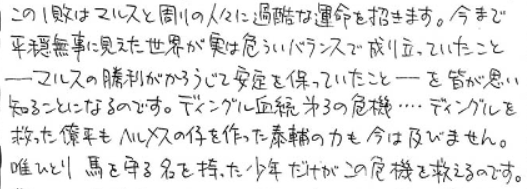 この1敗はマルスと周りの人々に過酷な運命を招きます。今まで
平穏無事に見えた世界が実は危ういバランスで成り立っていたこと
──マルスの勝利がかろうじて安定を保っていたこと──を皆が思い
知ることになるのです。ディングル血統才3の危機‥‥ディングルを
救った僚平もヘルメスの仔を作った泰輔の力も今は及びません。
唯ひとり 馬を守る名を持った少年だけがこの危機を救えるのです。